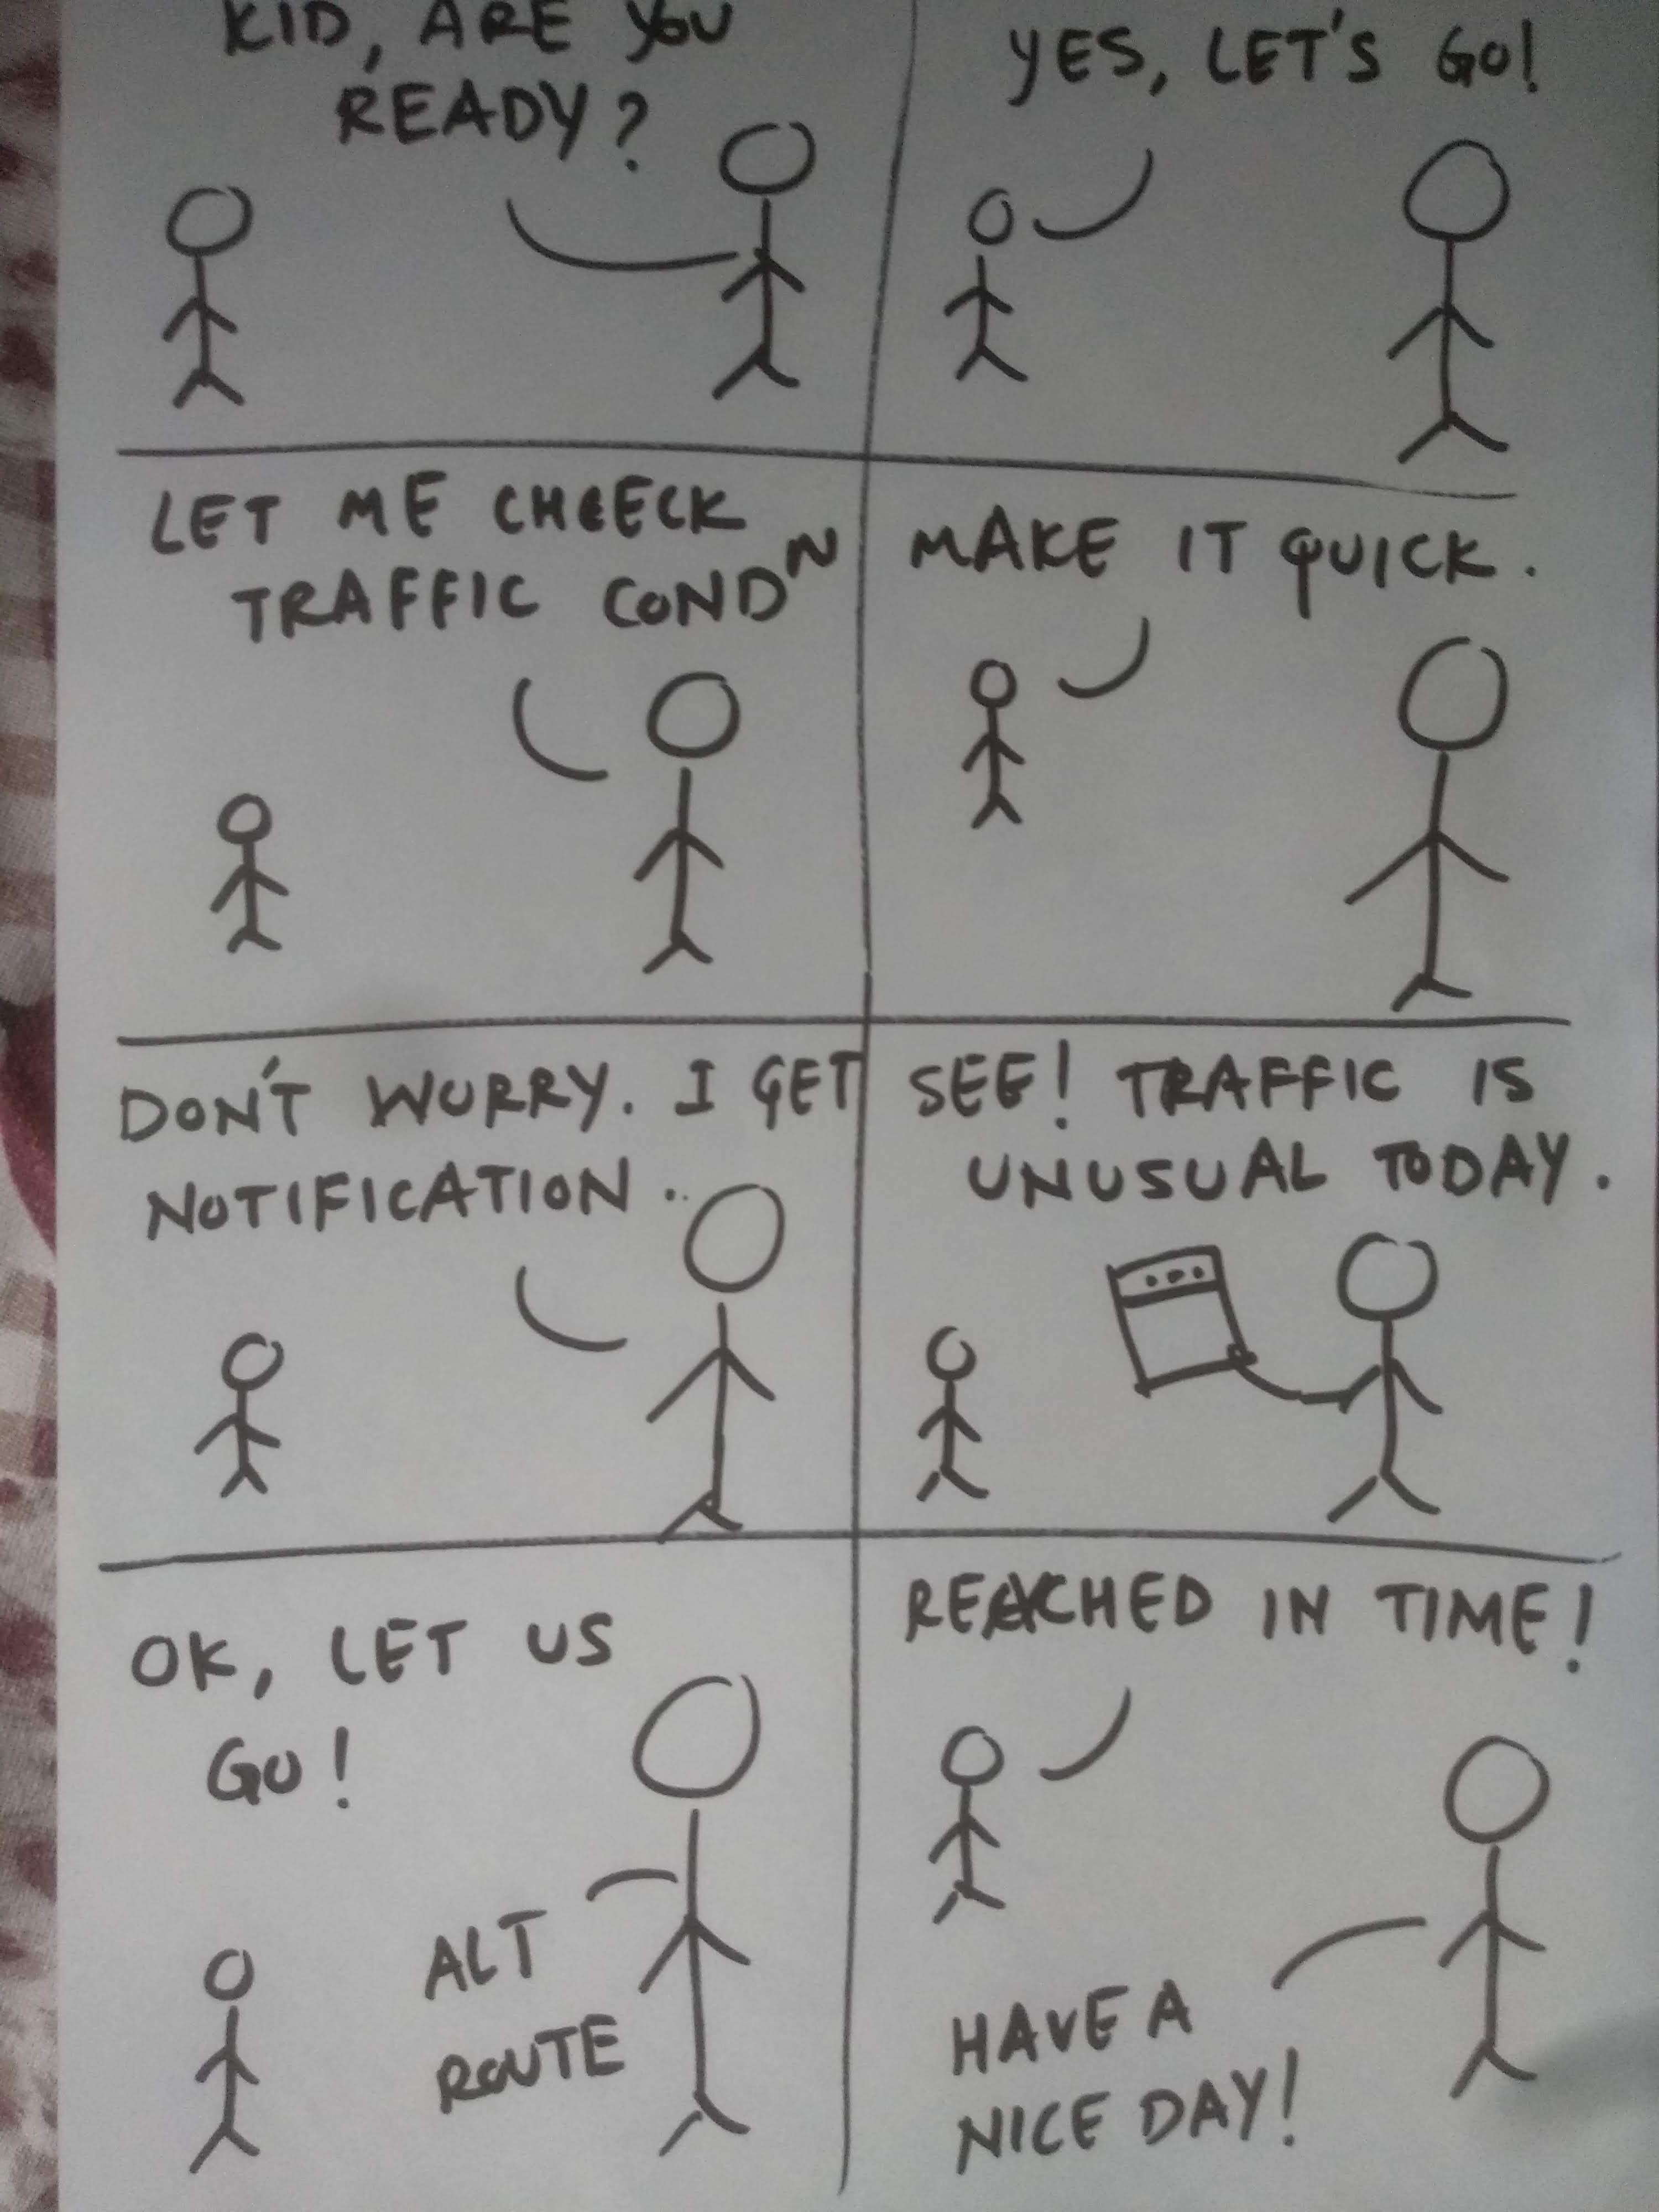 KID, ARE YOU
READY?
YES, LET'S GO!
LET ME CHEECK
TRAFFIC COND^N
MAKE IT QUICK.
DON'T WORRY. I GET
NOTIFICATION..
SEE! TRAFFIC IS
UNUSUAL TODAY.
OK, LET US
GO!
ALT
ROUTE
REACHED IN TIME!
HAVE A
NICE DAY!